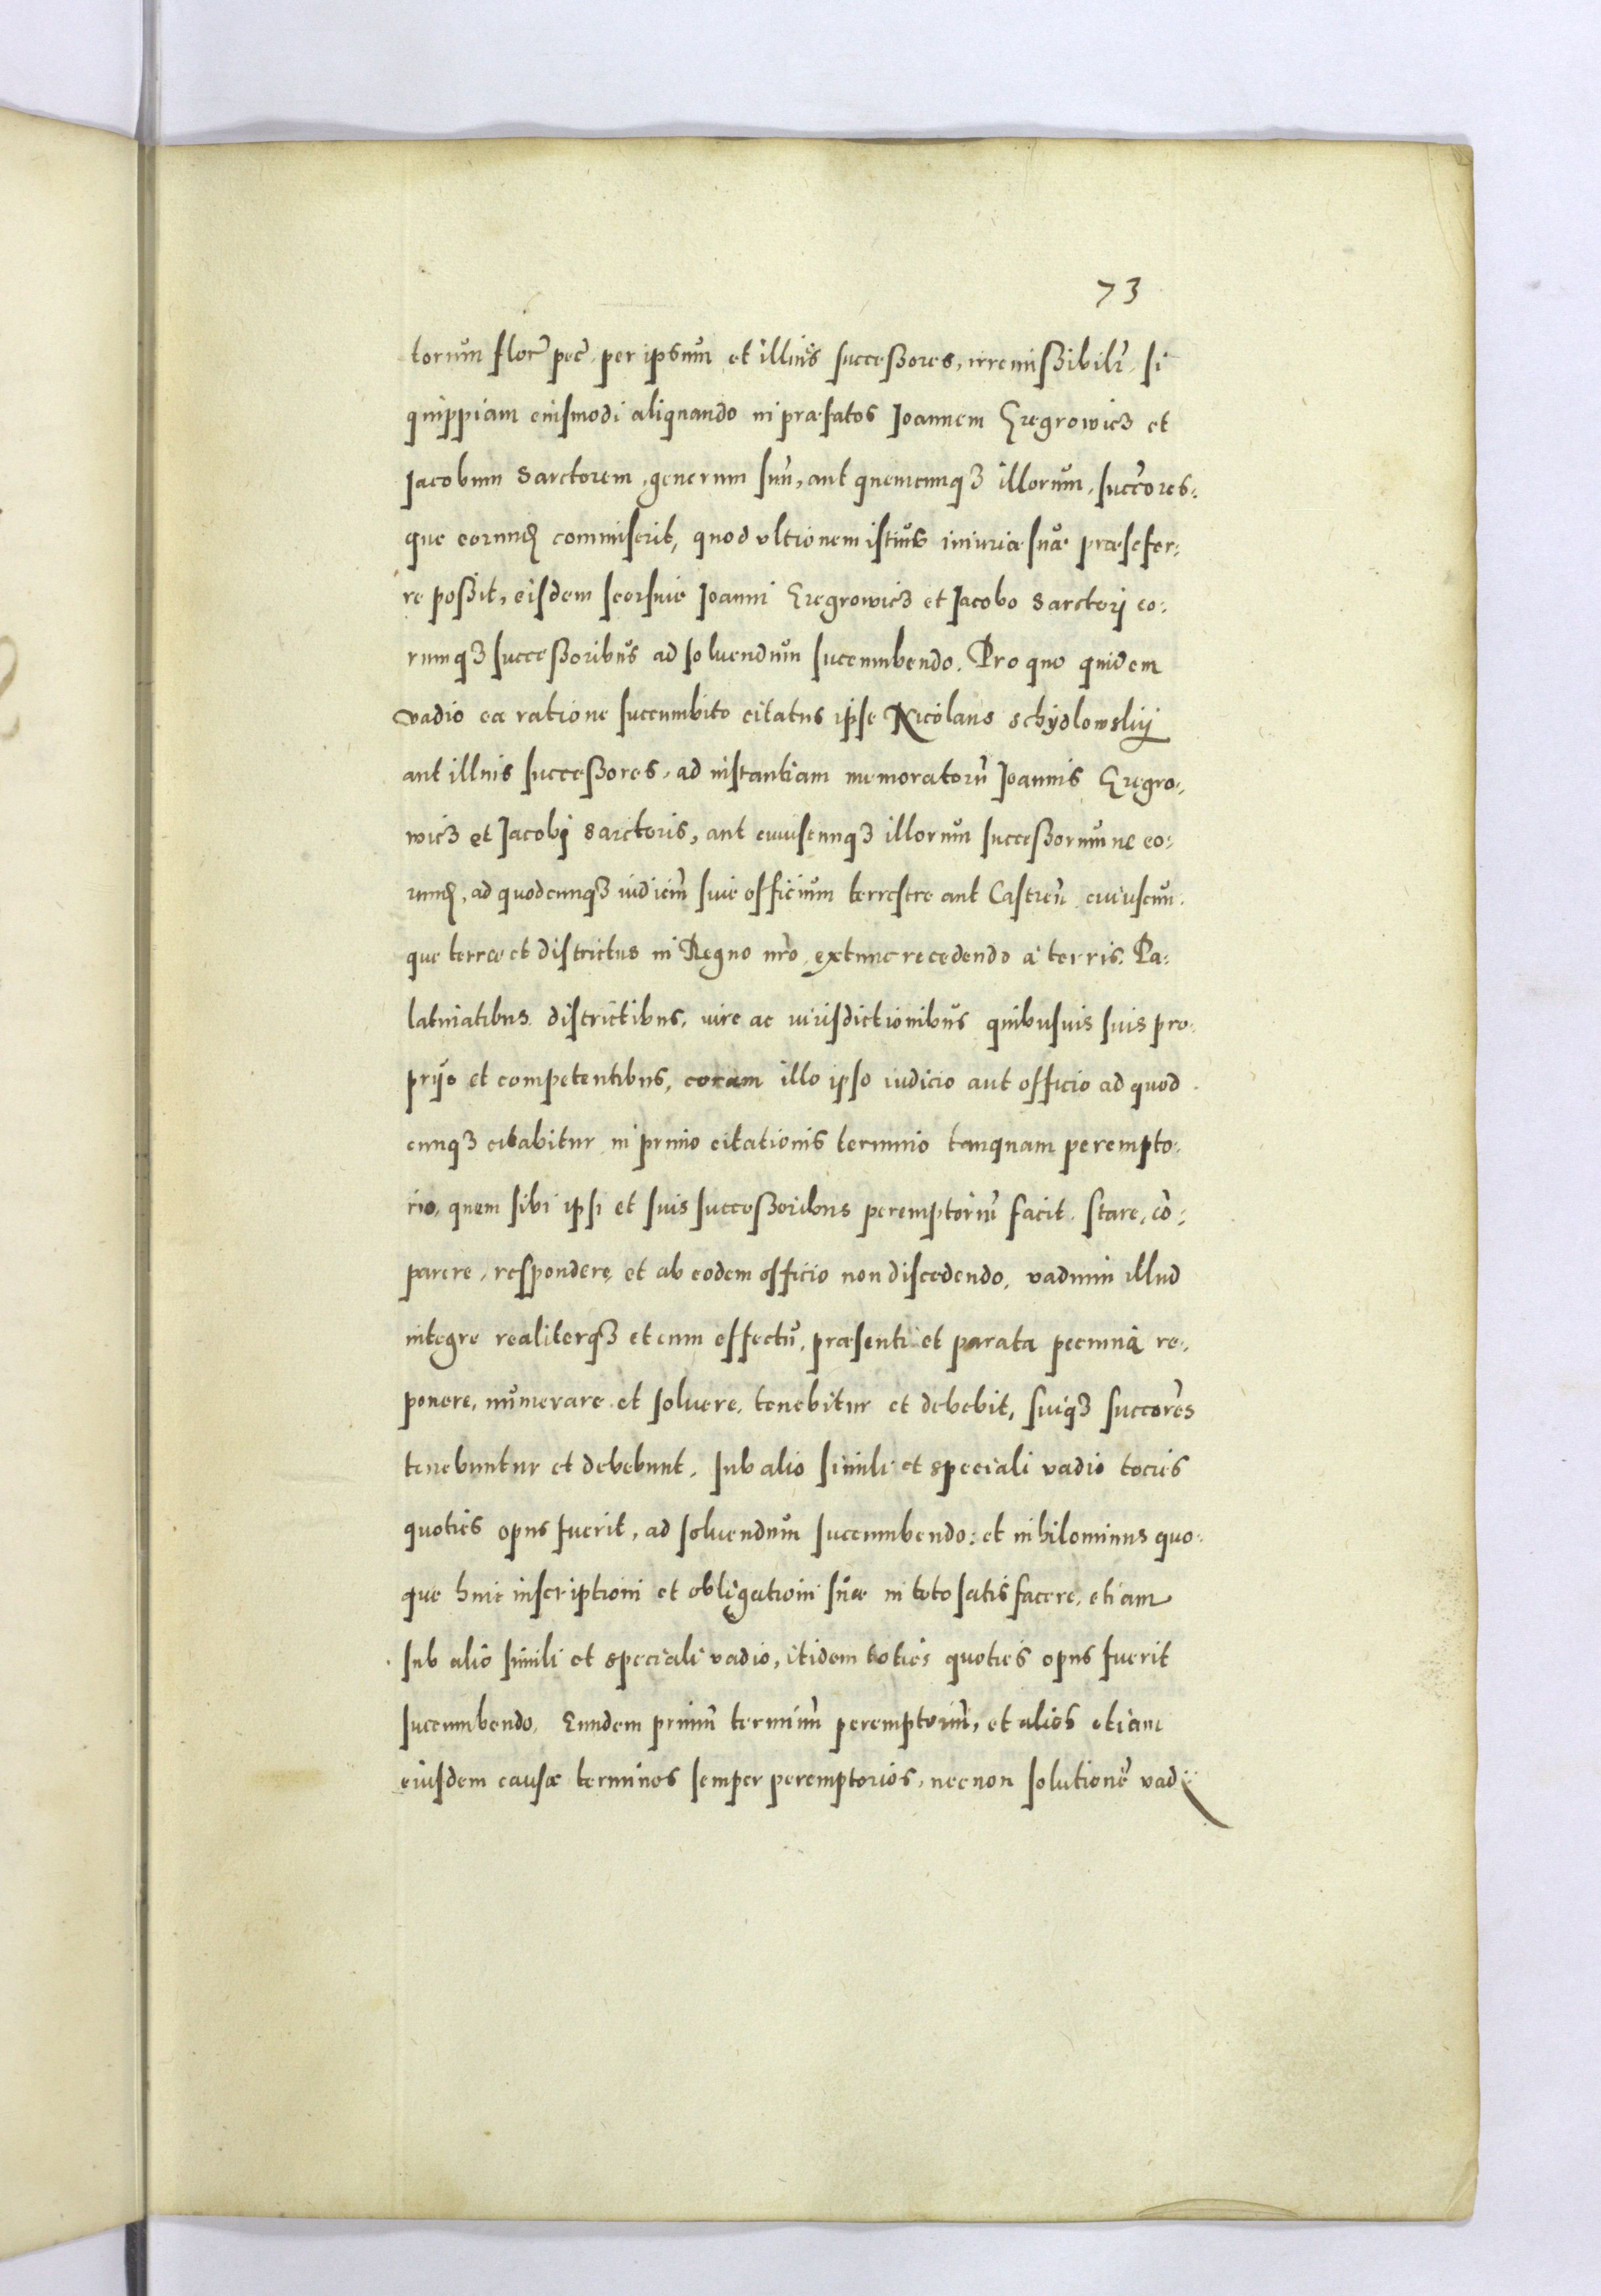 73
torum flor̃ pec̃. per ipsum et illius successores, irremissibilr̃. si
quippiam eiusmodi aliquando in præfatos Joannem Gregrowicz et
Jacobum Sarctorem, generum suũ, aut quemcunqꝫ illorum, succõres-
que eorund̃ commiserit, quod vltionem istius iniuriæ suæ præsefer-
re possit, eisdem seorsiue Joanni Gregrowicz et Jacobo Sarctorj eo-
rumqꝫ successoribus ad soluendum succumbendo. Pro quo quidem
vadio ea ratione succumbito citatus ipse Nicolaus Schydlowskij
aut illius successores, ad instantiam memoratorũ Joannis Gregro-
wicz et Jacobj Sarctoris, aut cuiuscunqꝫ illorum successorumue eo-
rund̃, ad quodcunqꝫ iudiciũ siue officium terrestre aut Castreñ. cuiuscun-
que terræ et districtus in Regno nr̃o, extunc recedendo a terris, Pa-
latinatibus districtibus, iure ac iurisdictionibus quibusuis suis pro-
prijs et competentibus, coram illo ipso iudicio aut officio ad quod
cunqꝫ citabitur, in primo citationis termino tanquam perempto-
rio, quem sibi ipsi et suis successoribus peremptoriũ facit. stare, cõ-
parere, respondere, et ab eodem officio non discedendo, vadium illud
integre realiterqꝫ et cum effectu, præsenti et parata pecunia re-
ponere, numerare et soluere, tenebitur et debebit, suiqꝫ succorẽs
tenebuntur et debebunt. sub alio simili et speciali vadio tocies
quoties opus fuerit, ad soluendum succumbendo: et nihilominus quo-
que huic inscriptioni et obligationi suæ in toto satisfacere, etiam
sub alio simili et speciali vadio, itidem toties quoties opus fuerit
succumbendo. Eundem primũ terminũ peremptoriũ, et alios etiam
eiusdem causæ terminos semper peremptorios, necnon solutionẽ vadij